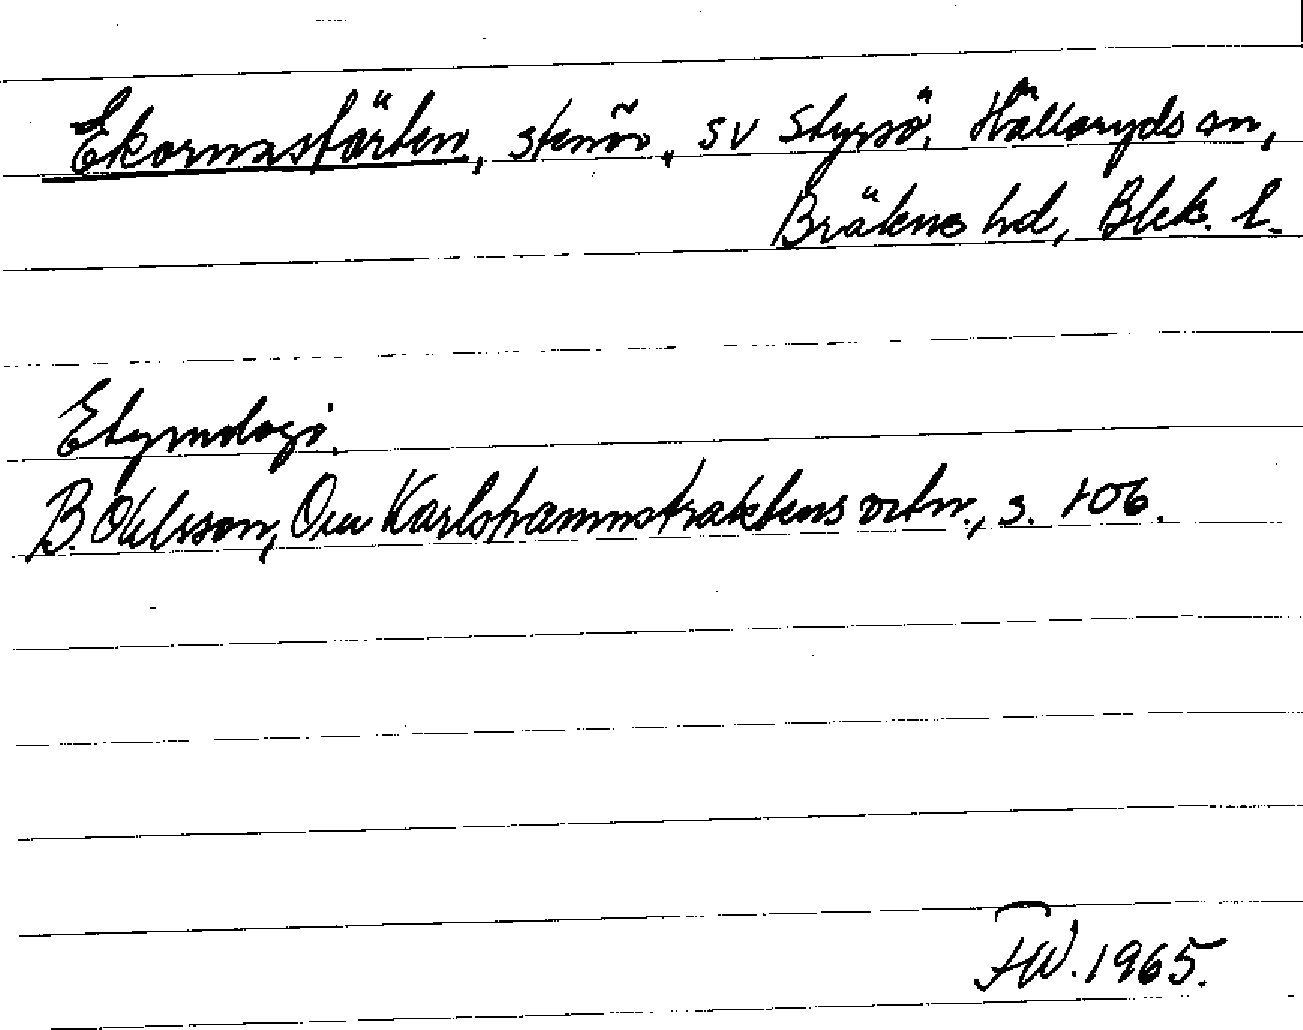 Ekornastärten, stenör, SV Styrsö, Hällaryds sn,
Bräkne hd, Blek. l.
Etymologi.
B. Ohlsson, Om Karlshamnstraktens ortn., s. 106.
FW. 1965.